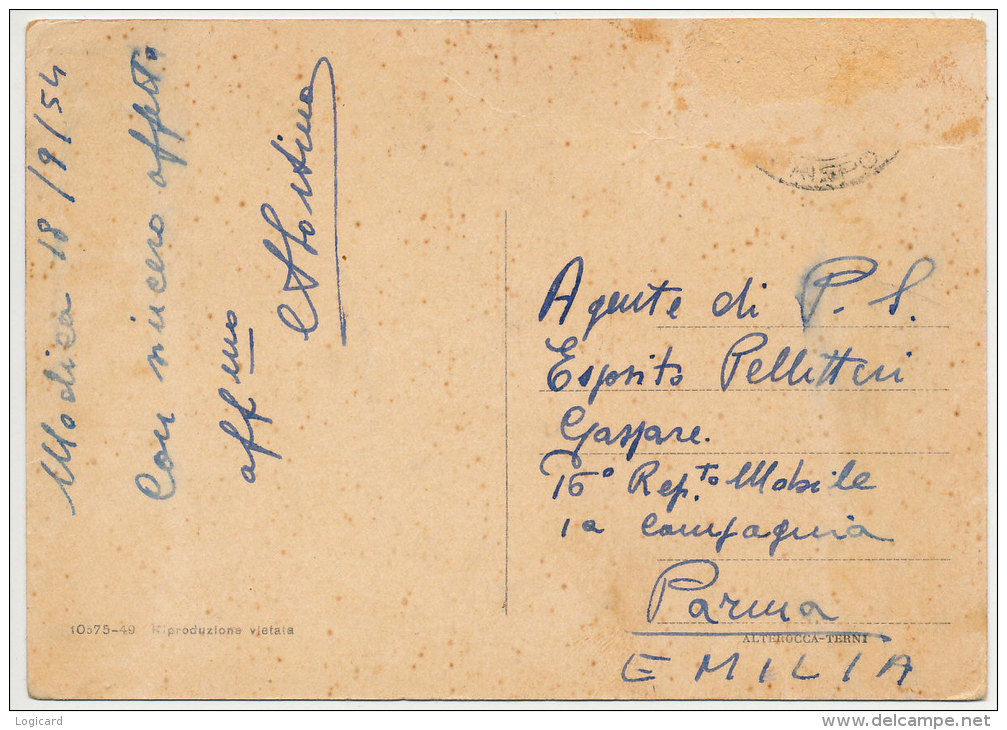 Modica 18/9/54
Con sincero affetto
aff mo
Agente di P. S.
Esposito Pellitteri
Gaspare.
16° Rep.to Mobile
1a Compagnia
Parma
EMILIA
10575-49 Riproduzione vietata
ALTEROCCA-TERNI
Logicard
delcampe.net